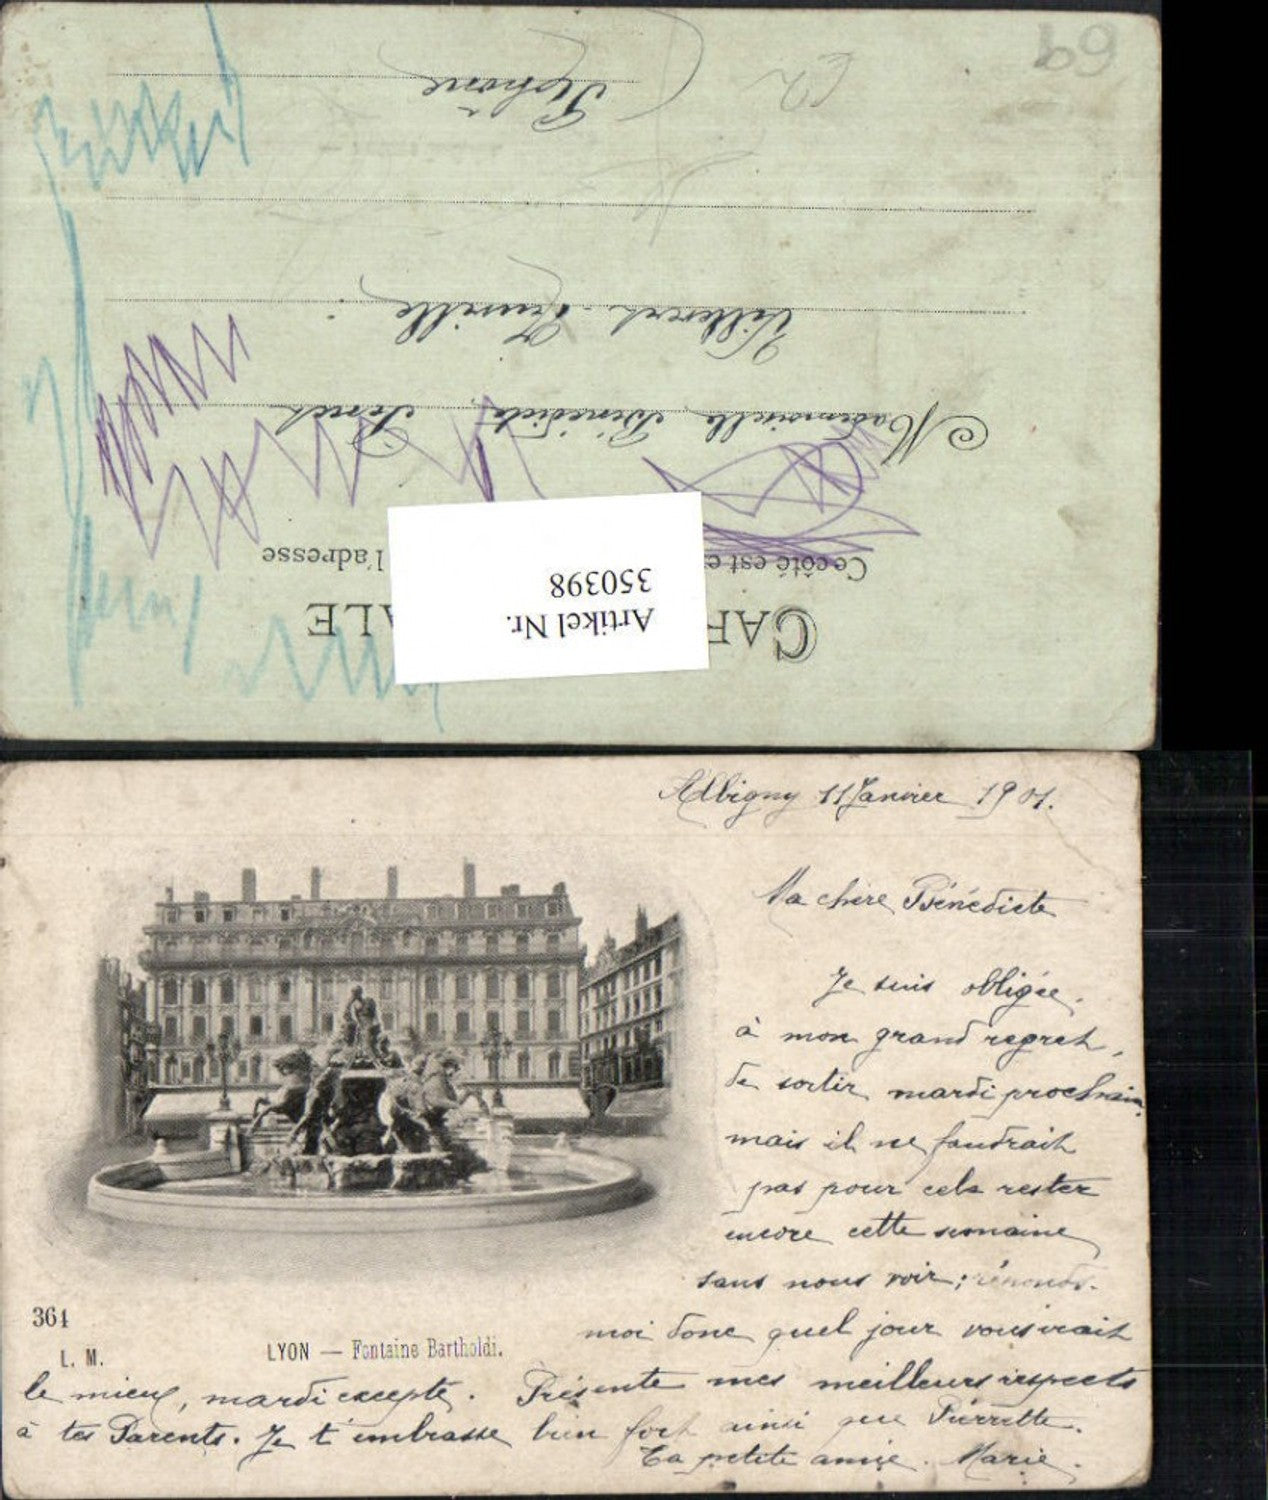 69
CARTE POSTALE
Ce côté est e l'adresse
Artikel Nr.
350398
Mademoiselle Bénédicte
Villevert - Neuville
Rhône
Albigny 11 Janvier 1901.
Ma chère Bénédicte
Je suis obligée,
à mon grand regret,
de sortir mardi prochain,
mais il ne faudrait
pas pour cela rester
encore cette semaine
sans nous voir; réponds-
moi donc quel jour vous irait
le mieux, mardi excepté. Présente mes meilleurs respects
à tes Parents. Je t'embrasse bien fort ainsi que Pierrette.
Ta petite amie. Marie.
364
L. M.
LYON — Fontaine Bartholdi.